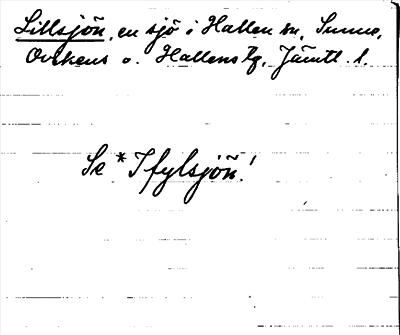 Lillsjön, en sjö i Hallen sn, Sunne,
Ovikens o. Hallens tg, Jämtl. l.
Se *Ifylsjön!